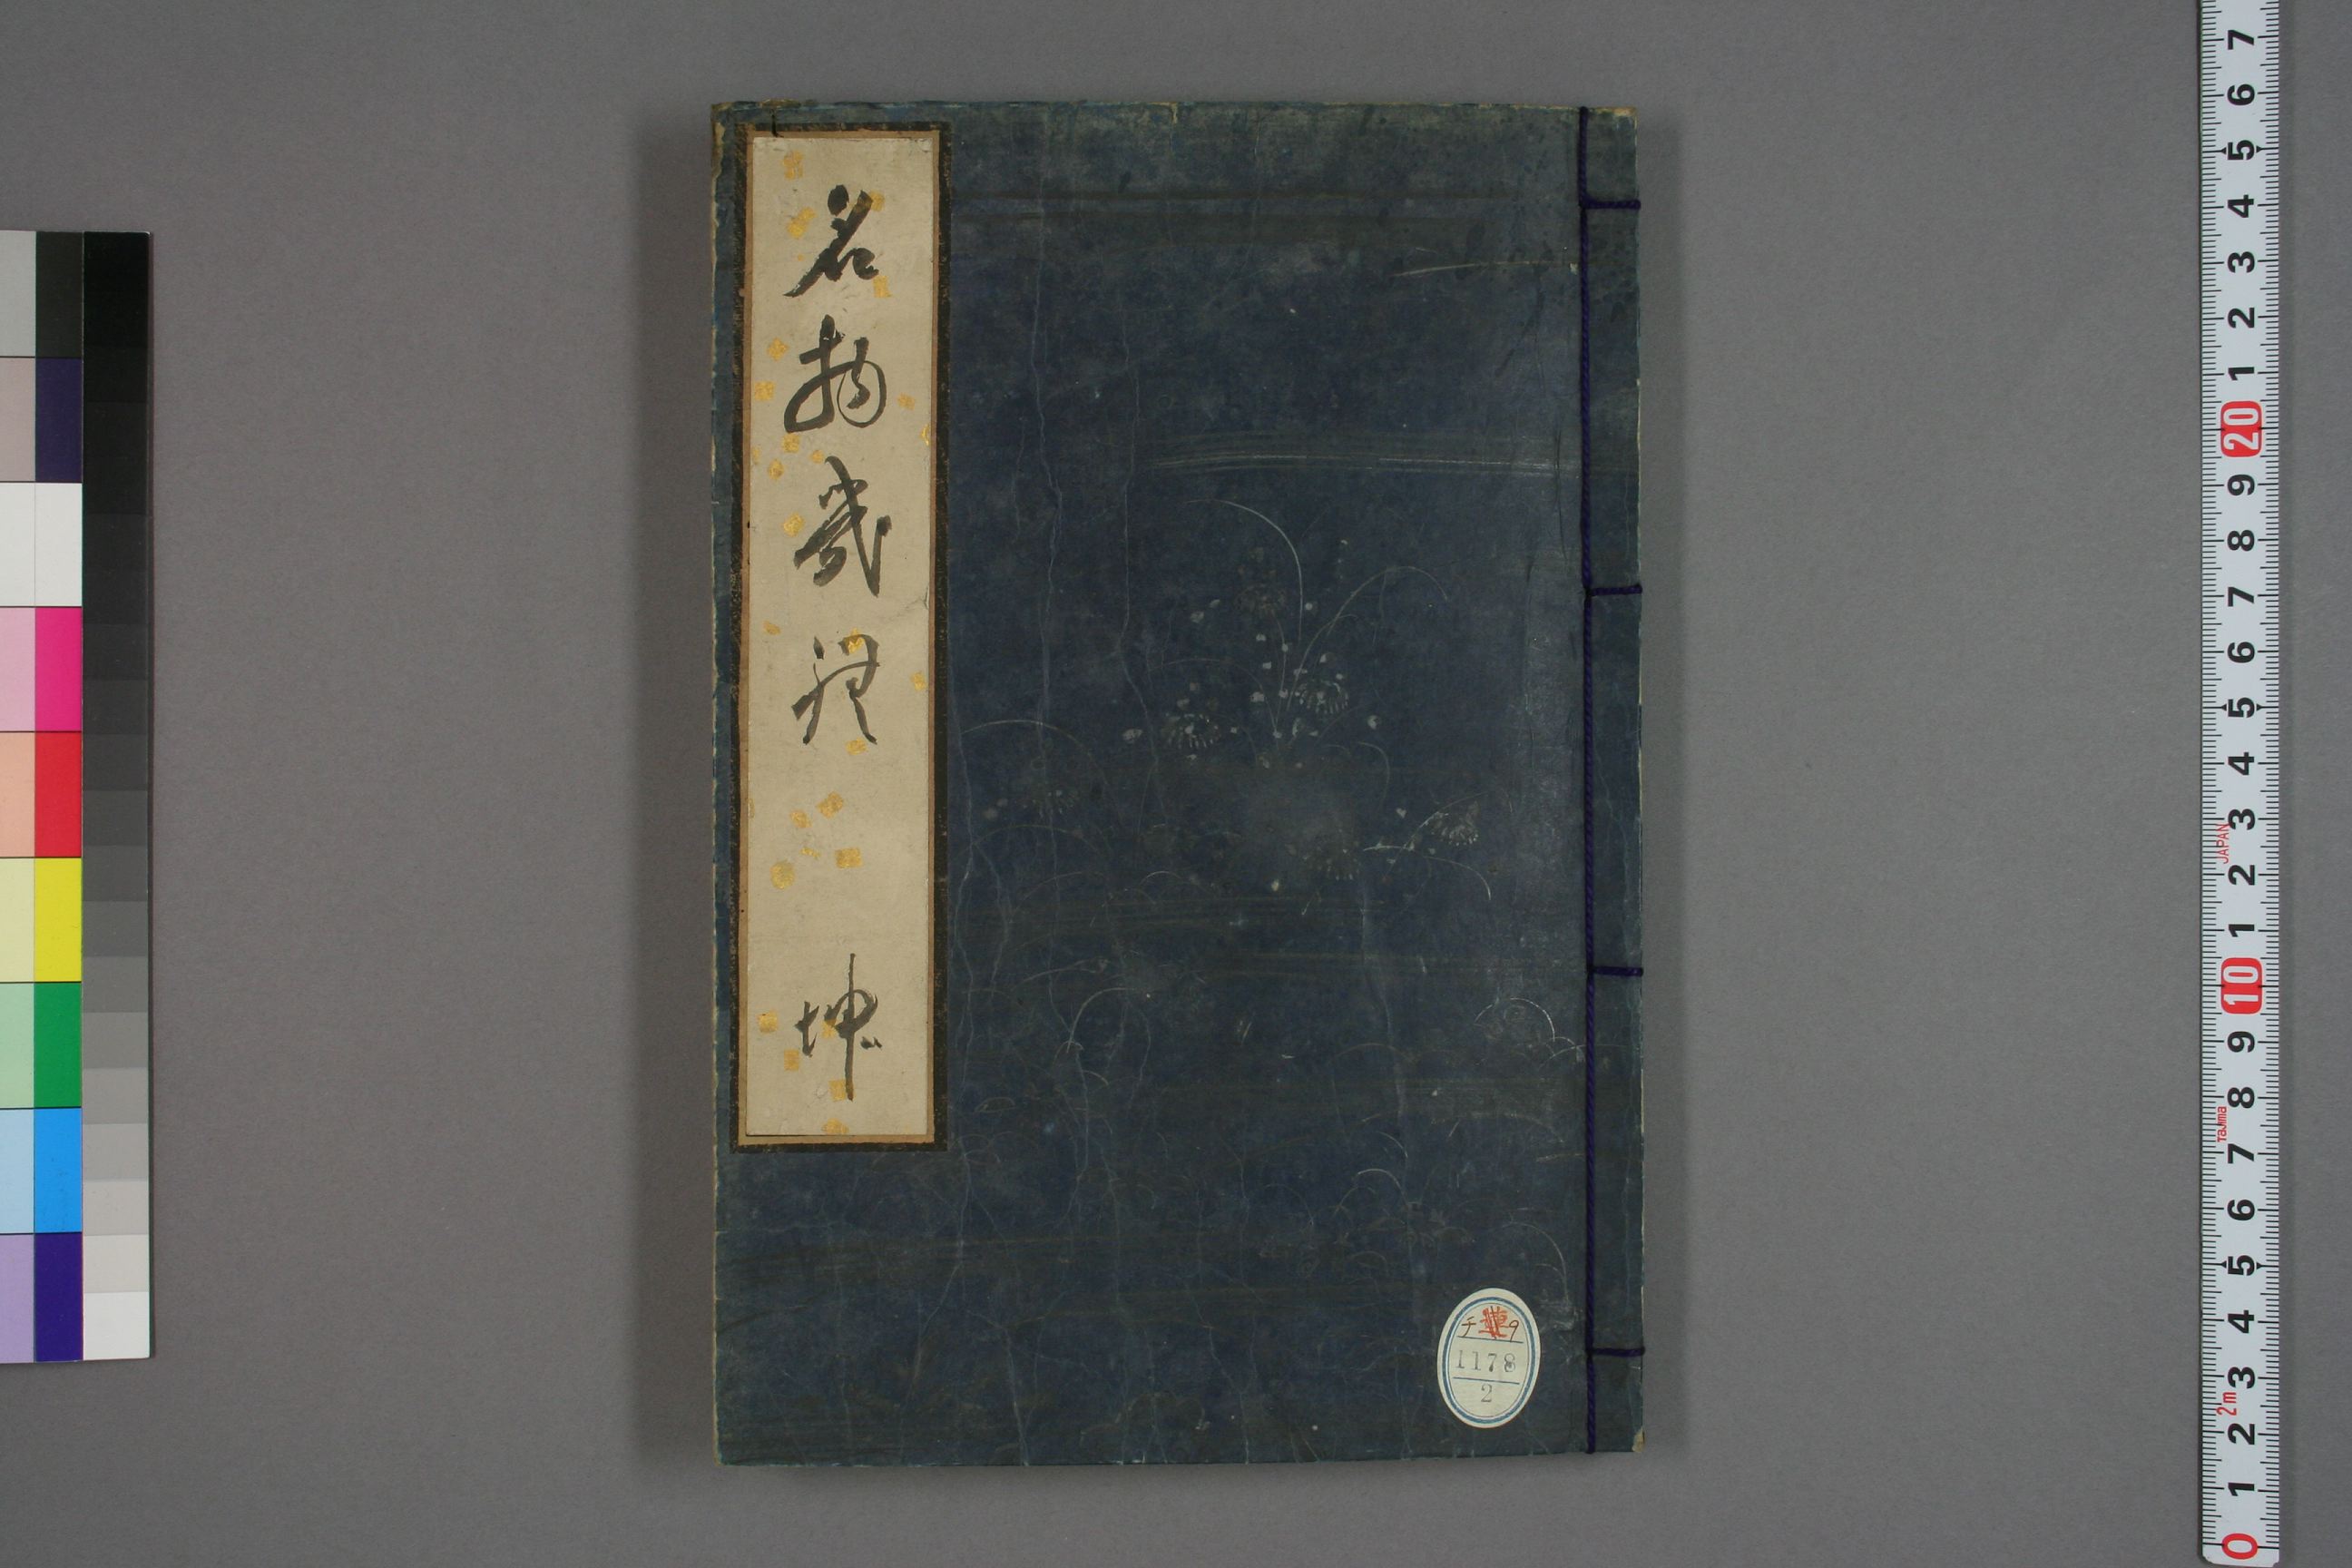 名物
坤
チ 9
1178
2
0 1 2 3 4 5 6 7 8 9 10 1 2 3 4 5 6 7 8 9 20 1 2 3 4 5 6 7
2m Tajima JAPAN